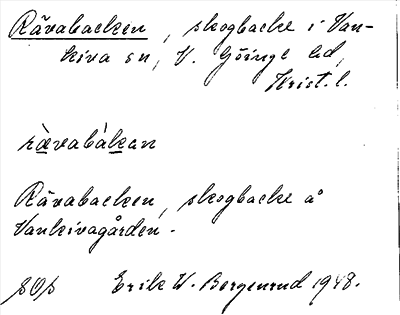 Rävabacken, skogbacke i Van-
kiva sn, V. Göinge hd,
Krist. l.
rävabàkan
Rävabacken, skogbacke å
Vankivagården.
Erik W. Bergenrud 1948.